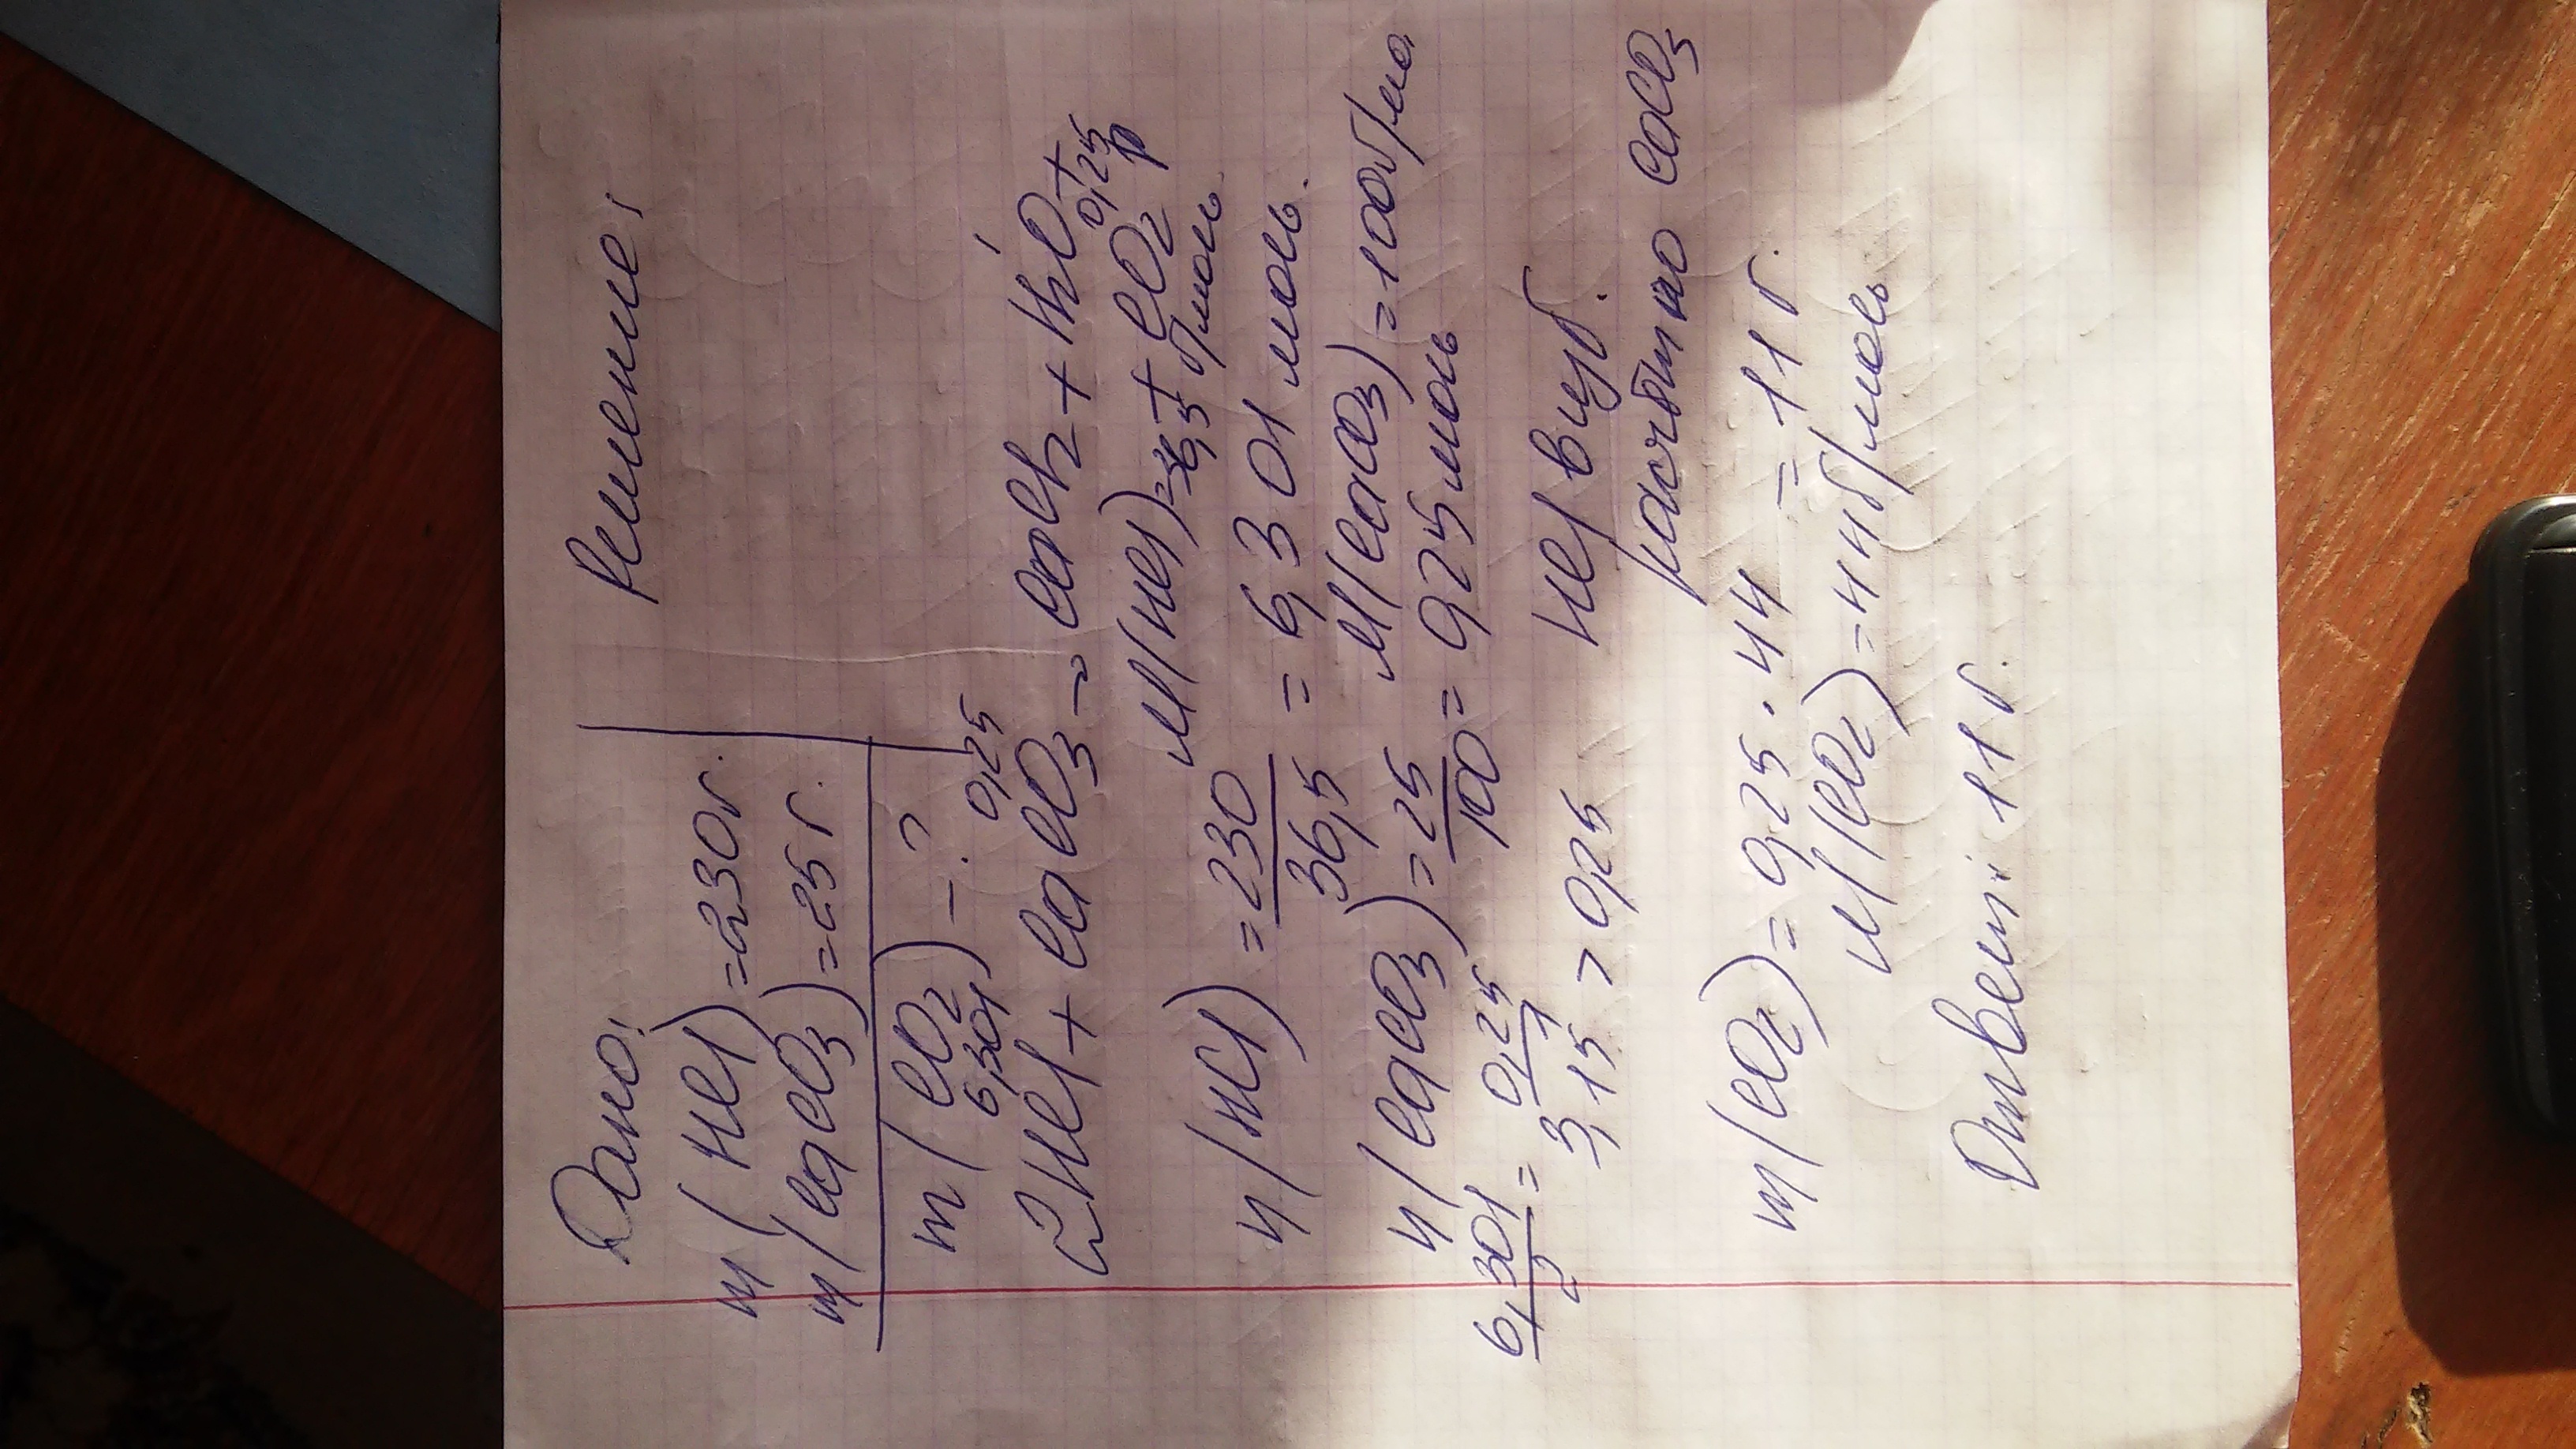 Дано: Решение:
m(HCl)=230г.
m(CaCO3)=25г.
m(CO2)-?
6,301 0,25
2HCl + CaCO3 → CaCl2 + H2O +
+ CO2 0,25
M(HCl)=36,5 г/моль
n(HCl) = 230/36,5 = 6,301 моль.
M(CaCO3)=100г/мо
n(CaCO3)=25/100=0,25моль
6,301/2 = 0,25/1
3,15 > 0,25
HCl в изб.
расчёт по CaCO3
m(CO2)=0,25·44=11г.
M(CO2)=44г/моль
Ответ: 11г.